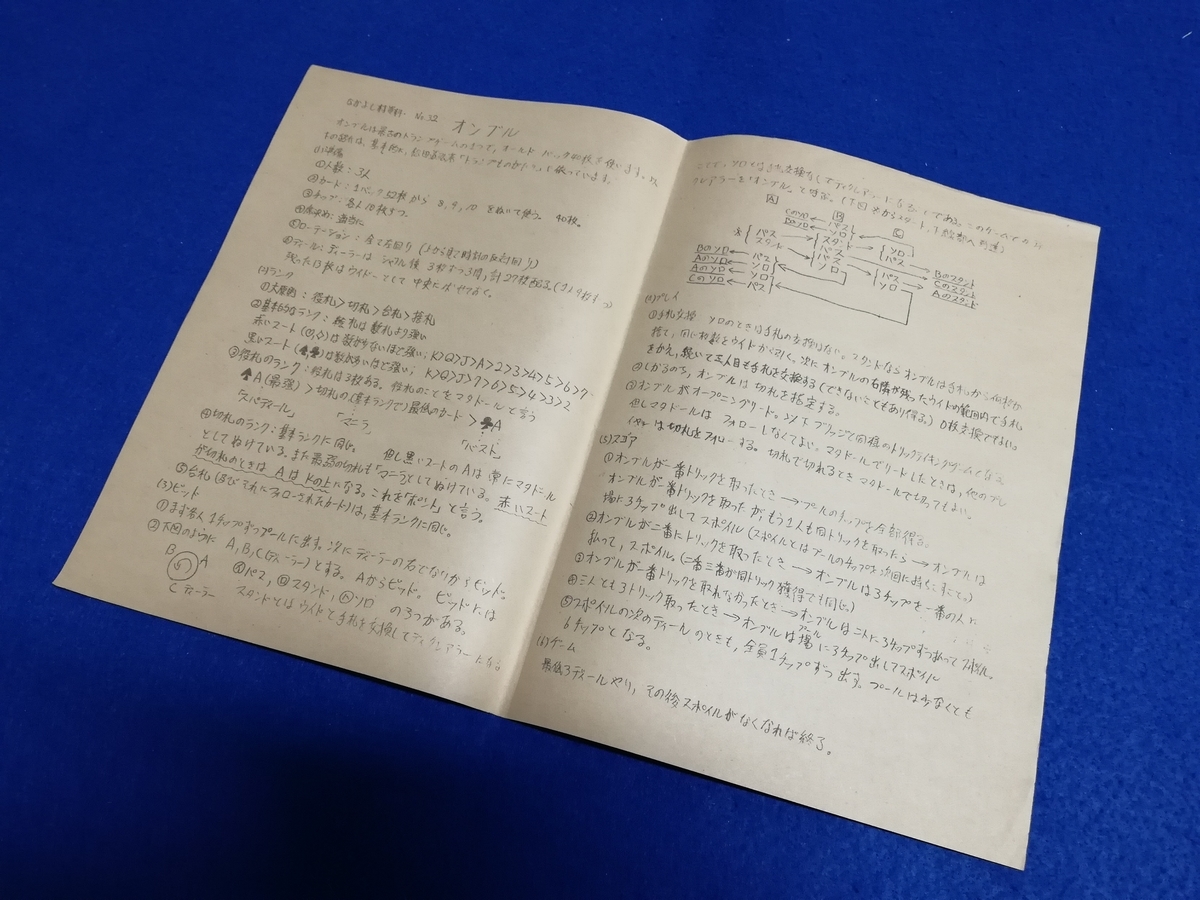 なかよし村事件 No.32
オンブル
オンブルは最古のトランプゲームの1つで、オールド パック40枚を使います。
基本的に、松田道弘「トランプものがたり」に依っています。
(1)準備
①人数:3人
②カード:1パック52枚から 8, 9, 10 をぬいて使う。 40枚。
③チップ:各人10枚ずつ。
④席決め:適当に
⑤ローテーション:全て左回り (上から見て時計の反対回り)
⑥ディール:ディーラーは シャフル後 3枚ずつ3周、計27枚配る(1人9枚ずつ)
残った13枚はウイドーとして 中央にふせておく。
(2)ランク
①大原則:役札>切札>台札>捨札
②基本的なランク:絵札は数札より強い
赤いスート(♡,♢)は数が少ないほど強い; K>Q>J>A>2>3>4>5>6>7
黒いスート(♠,♣)は数が多いほど強い; K>Q>J>7>6>5>4>3>2
③役札のランク:役札は3枚ある。役札のことをマタドールと言う
♠A(最強)>切札の(基本ランクで)最低のカード>♣A
「スパディール」 「マニラ」 「バスト」
④切札のランク:基本ランクに同じ。 但し黒いスートのAは常にマタドール
としてぬけている。また最弱の切札も「マニラ」としてぬけている。赤いスート
が切札のときは Aは Kの上になる。これを「ポント」と言う。
⑤台札(及びそれにフォローされたカード)は、基本ランクに同じ。
(3)ビッド
①まず各人1チップずつプールに出す。次にディーラーの右どなりからビッド。
②下図のように A, B, C(ディーラー)とする。Aからビッド。ビッドには
B A ㋑パス, ㋺スタンド, ㋩ソロ の3つがある。
C ディーラー スタンドとはウイドと手札を交換してディクレアラーになる
ことで、ソロとは手札交換なしでディクレアラーになることである。このゲームでの
クレアラーを「オンブル」と呼ぶ。(下図 ※からスタート、下線部へ到達)
A B C
Cのソロ パス
Bのソロ ソロ
※ パス スタンド ソロ
スタンド パス パス
Bのソロ パス パス パス Bのスタンド
Aのソロ ソロ ソロ ソロ Cのスタンド
Aのソロ ソロ Aのスタンド
Cのソロ パス
(4)プレイ
①手札交換 ソロのときは手札の交換はない。スタンドなら オンブルは手札から何枚か
捨て、同じ枚数をウイドから引く。次に オンブルの右隣が残ったウイドの範囲内で手札
をかえ、続いて三人目も手札を交換する(できないこともあり得る) 0枚交換でもよい。
②しかるのち、オンブルは 切札を指定する。
③オンブルがオープニングリード。以下ブリッジと同様のトリックテイキングゲームとなる。
但しマタドールは フォローしなくてよい。マタドールでリードしたときは、他のプレ
イヤーは切札をフォローする。切札で切れるとき マタドールで切ってもよい。
(5)スコア
①オンブルが一番トリックを取ったとき→プールのチップを全部得る。
オンブルが一番トリックを取ったが、もう1人も同トリックを取ったら→オンブルは
場に3チップ出してスポイル(スポイルとはプールのチップを次回に持ちこすこと。)
②オンブルが二番にトリックを取ったとき→オンブルは3チップを一番の人に
払って、スポイル。(二番三番が同トリック獲得でも同じ。)
③オンブルが一番トリックを取れなかったとき→オンブルは二人に3チップずつ払ってスポイル。
④三人とも3トリック取ったとき→オンブルは場に3チップ出してスポイル
⑤スポイルの次のディールのときも、全員1チップずつ出す。プールは少なくとも
6チップとなる。
(6)ゲーム
最低3ディールやり、その後スポイルがなくなれば終了。